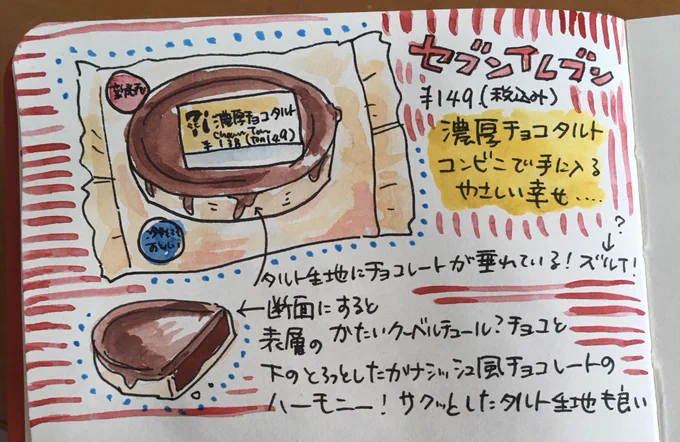 セブンイレブン
¥149(税込み)
新発売
濃厚チョコタルト
¥138
濃厚チョコタルト
コンビニで手に入る
やさしい幸せ....
おいしい
?
タルト生地にチョコレートが垂れている!ズルイ!
←断面にすると
表層のかたいクーベルチュール?チョコと
下のとろっとしたガナッシュ風チョコレートの
ハーモニー!サクッとしたタルト生地も良い